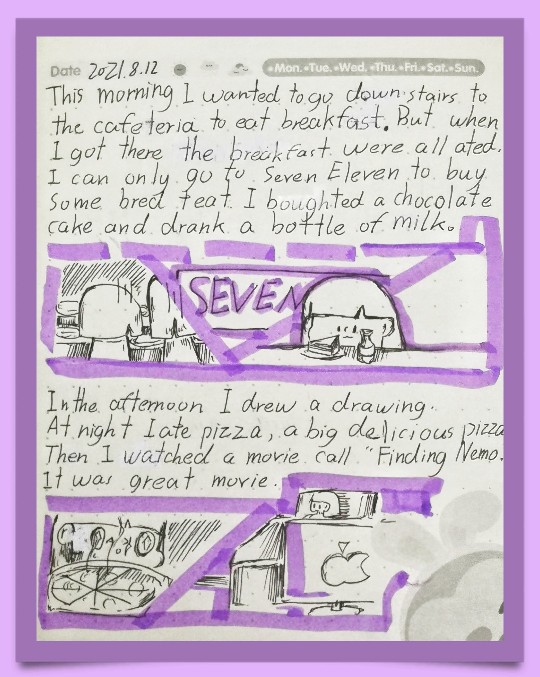 Date 2021.8.12 •Mon.•Tue.•Wed.•Thu.•Fri.•Sat.•Sun.
This morning I wanted to go down stairs to
the cafeteria to eat breakfast. But when
I got there the breakfast were all ated.
I can only go to Seven Eleven to buy
some bred teat. I boughted a chocolate
cake and drank a bottle of milk.
SEVEN
In the afternoon I drew a drawing.
At night I ate pizza, a big delicious pizza
Then I watched a movie call "Finding Nemo.
It was great movie.